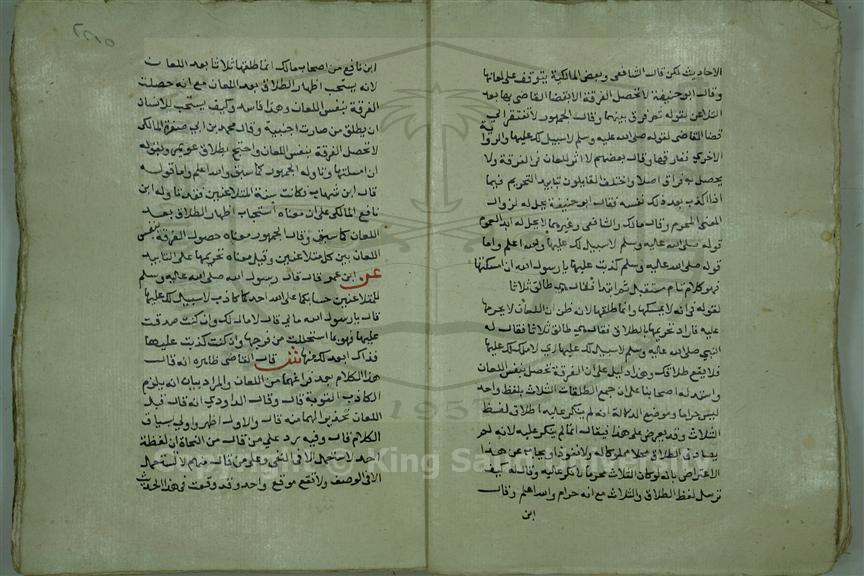 الاحاديث لكن قال الشافعي وبعض المالكية يتوقف على لعانها
وقال ابو حنيفة لا تحصل الفرقة الا بقضا القاضي بها بعد
التلاعن لقوله ثم فرق بينهما وقال الجمهور لا تفتقر الي
قضا القاضي لقوله صلي الله عليه وسلم لا سبيل لك عليها والرواية
الاخري ففارقها وقال بعضهم لا اثر للعان في الفرقة ولا
يحصل به فراق اصلا واختلف القايلون بتابيد التحريم فيما
اذا اكذب بعد ذلك نفسه فقال ابو حنيفة تحل له لزوال
المعني المحرم وقال مالك والشافعي وغيرهما لا تحل له ابدا لعموم
قوله صلي الله عليه وسلم لا سبيل لك عليها والله اعلم واما
قوله صلي الله عليه وسلم كذبت عليها يا رسول الله ان امسكتها
فهو كلام تام مستقبل ثم ابتدا فقال هي طالق ثلاثا
لقوله في انه لا يمسكها وانما طلقها لانه ظن ان اللعان لا يحرمها
عليه فاراد تحريمها بالطلاق فقال هي طالق ثلاثا فقال له
النبي صلي الله عليه وسلم لا سبيل لك عليها اي لا ملك لك عليها
فلا يقع طلاقك وهذا دليل علي ان الفرقة تحصل بنفس اللعان
واستدل به اصحابنا علي ان جمع الطلقات الثلاث بلفظ واحد
ليس حراما وموضع الدلالة انه لم ينكر عليه اطلاق لفظ
الثلاث وقد يعترض علي هذا فيقال انما لم ينكر عليه لانه لم
يصادف الطلاق محلا مملوكا له ولا نفوذا ويجاب عن هذا
الاعتراض بانه لو كان الثلاث محرما لانكر عليه وقال له كيف
ترسل لفظ الطلاق والثلاث مع انه حرام والله اعلم وقال
ابن
ابن نافع من اصحاب مالك انما طلقها ثلاثا بعد اللعان
لانه يستحب اظهار الطلاق بعد اللعان مع انه حصلت
الفرقة بنفس اللعان وهذا فاسد وكيف يستحب للانسان
ان يطلق من صارت اجنبية وقال محمد بن ابي صفرة المالكي
لا تحصل الفرقة بنفس اللعان واحتج بطلاق عويمر وبقوله
ان امسكتها وتاوله الجمهور كما سبق والله اعلم واما قوله
قال ابن شهاب فكانت سنة المتلاعنين فقد تاوله ابن
نافع المالكي علي ان معناه استحباب اظهار الطلاق بعد
اللعان كما سبق وقال الجمهور معناه حصول الفرقة بنفس
اللعان بين كل متلاعنين وقيل معناه تحريمها علي التابيد
عن ابن عمر قال قال رسول الله صلي الله عليه وسلم
للمتلاعنين حسابكما علي الله احدكما كاذب لا سبيل لك عليها
قال يا رسول الله مالي قال لا مال لك وان كنت صدقت
عليها فهو بما استحللت من فرجها وان كنت كذبت عليها
فذاك ابعد لك منها ش قال القاضي ظاهره انه قال
هذا الكلام بعد فراغهما من اللعان والمراد بيان انه يلزم
الكاذب التوبة قال وقال الداودي انه قال قبل
اللعان تحذيرا لهما منه قال والاول اظهر واولي بسياق
الكلام قال وفيه رد علي من قال من النحاة ان لفظة
احد لا تستعمل الا في النفي وعلي من قال منهم لا تستعمل
الا في الوصف ولا تقع موقع واحد وقد وقعت في هذا الحديث
© King Saud
1957